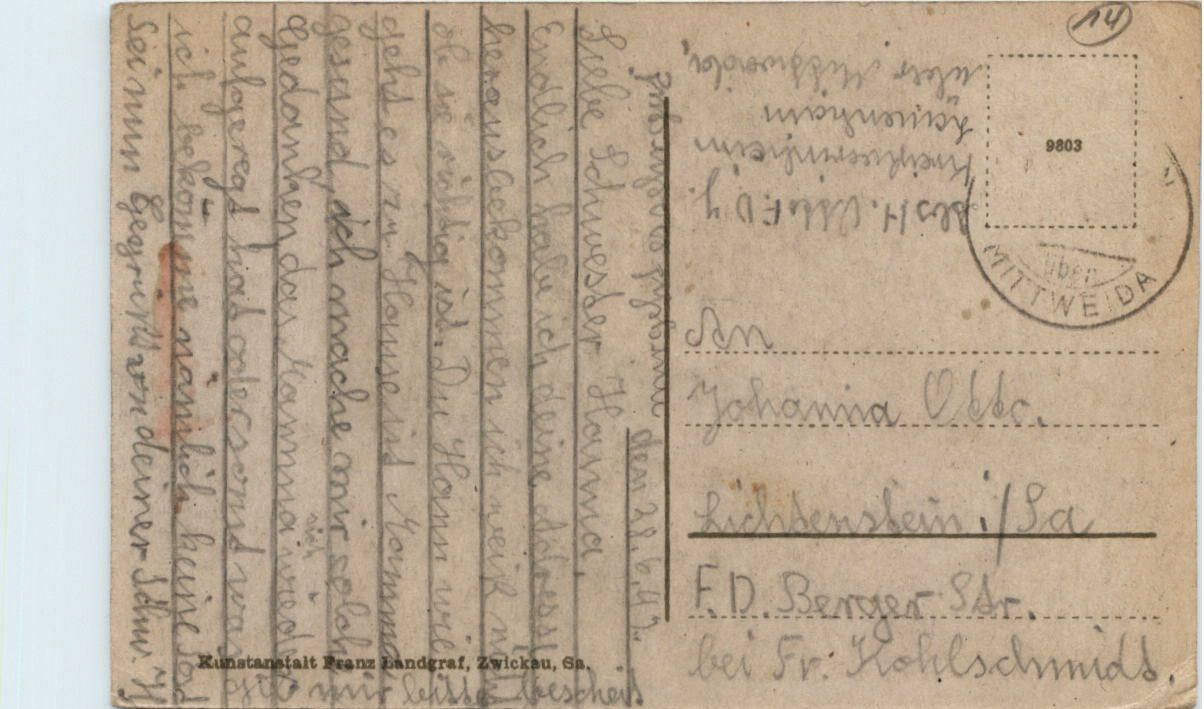 14
9803
über
MITTWEIDA
Abs. H. Otto F. D. J.
über Mittweida
An
Johanna Otto.
Lichtenstein i/Sa
F.D. Berger Str.
bei Fr. Kohlschmidt.
den 28.6.47.
Liebe Schwester Hanna,
Endlich habe ich deine Adresse
herausbekommen ich weiß nicht
ob sie richtig ist. Du Hann wie
geht es zu Hause ist Mamma
gesund, ich mache mir solch
Gedanken das Mamma wieder
sich
aufgeregt hat oder sonst was
ich bekomme nämlich keine Post
Sei nun gegrüßt von deiner Schw. H
gib mir bitte bescheit
Kunstanstalt Franz Landgraf, Zwickau, Sa.